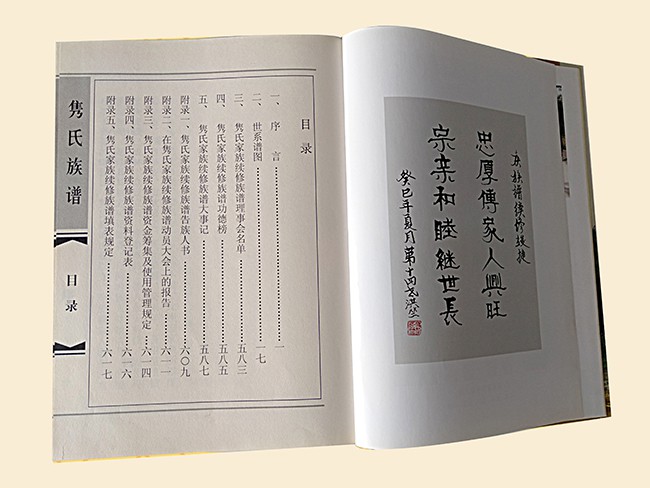 隽氏族谱
目录
目录
一、序言……一
二、世系谱图……一七
三、隽氏家族续修族谱理事会名单……五八三
四、隽氏家族续修族谱功德榜……五八五
五、隽氏家族续修族谱大事记……五八七
附录一、隽氏家族续修族谱告族人书……六〇九
附录二、在隽氏家族续修族谱动员大会上的报告……六一一
附录三、隽氏家族续修族谱资金筹集及使用管理规定……六一四
附录四、隽氏家族续修族谱资料登记表……六一六
附录五、隽氏家族续修族谱填表规定……六一七
族譜續修
忠厚傳家人興旺
宗亲和睦繼世長
癸巳年夏月第十四戈洪